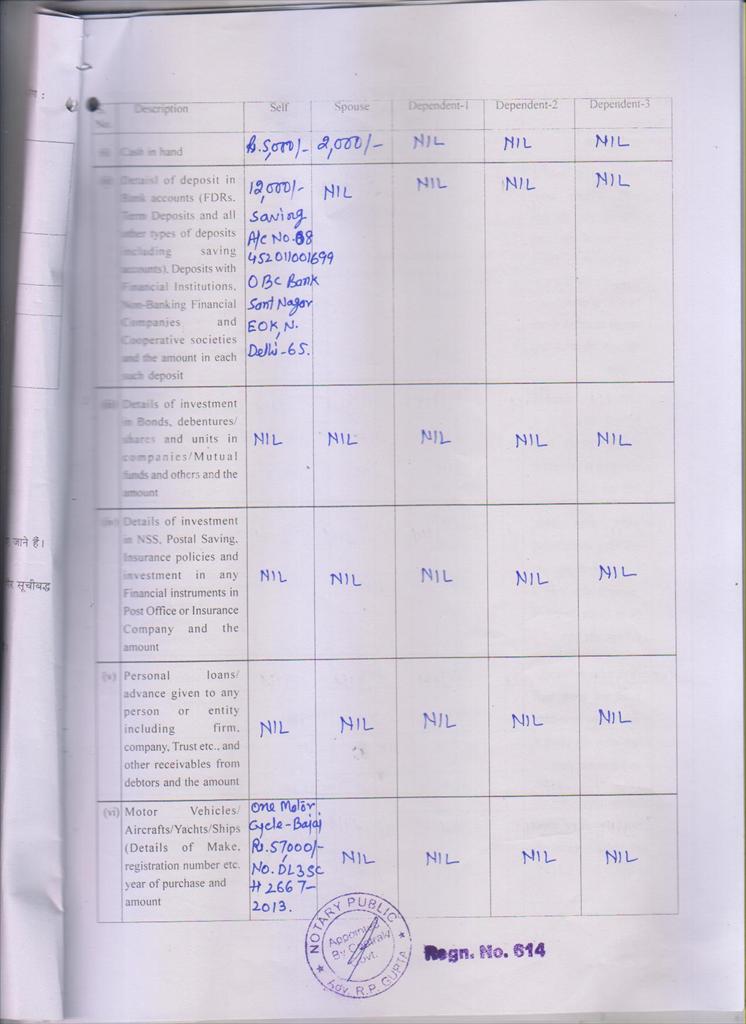 No.
Description Self Spouse Dependent-1 Dependent-2 Dependent-3
(i) Cash in hand Rs.5,000/- 2,000/- NIL NIL NIL
(ii) Details of deposit in
Bank accounts (FDRs,
Term Deposits and all
other types of deposits
including saving
accounts), Deposits with
Financial Institutions,
Non-Banking Financial
Companies and
Cooperative societies
and the amount in each
such deposit
12,000/-
Saving
A/c No.
452011001699
OBC Bank
Sant Nagar
EOK, N.
Delhi-65.
NIL NIL NIL NIL
(iii) Details of investment
in Bonds, debentures/
shares and units in
companies/Mutual
funds and others and the
amount
NIL NIL NIL NIL NIL
(iv) Details of investment
in NSS, Postal Saving,
Insurance policies and
investment in any
Financial instruments in
Post Office or Insurance
Company and the
amount
NIL NIL NIL NIL NIL
(v) Personal loans/
advance given to any
person or entity
including firm,
company, Trust etc., and
other receivables from
debtors and the amount
NIL NIL NIL NIL NIL
(vi) Motor Vehicles/
Aircrafts/Yachts/Ships
(Details of Make,
registration number etc.
year of purchase and
amount
One Motor
Cycle-Bajaj
Rs.57000/-
No. DL3SC
# 2667-
2013.
NIL NIL NIL NIL
NOTARY PUBLIC
Appointed
By Central
Govt.
Adv. R.P. GUPTA
Regn. No. 614
जाने हैं।
सूचीबद्ध